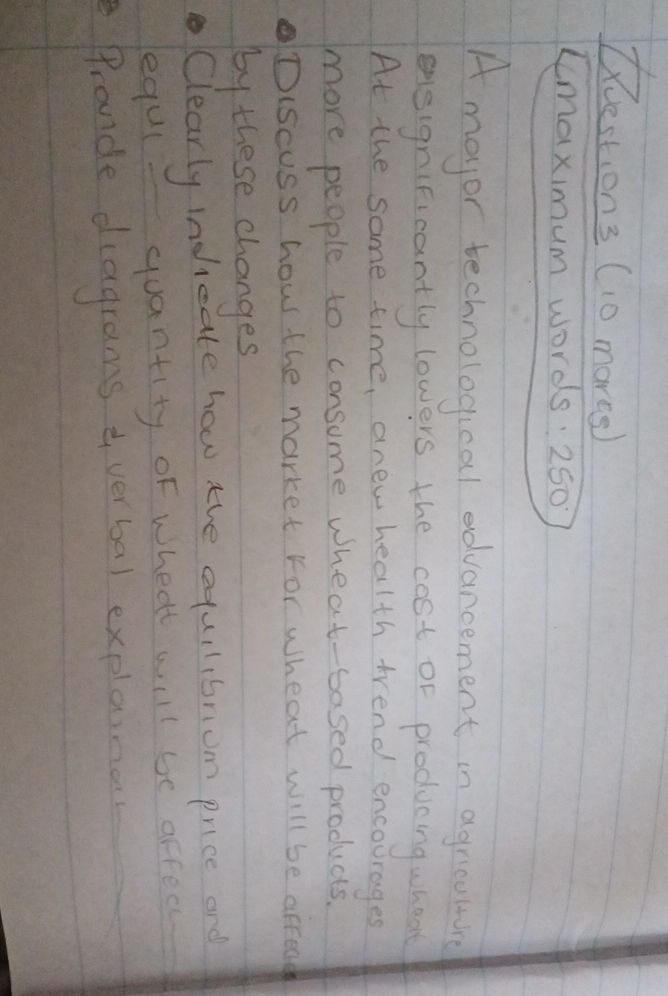 Question 3 (10 marks)
[maximum words: 250]
A major technological advancement in agriculture
significantly lowers the cost of producing wheat
At the same time, a new health trend encourages
more people to consume wheat-based products.
• Discuss how the market for wheat will be affec
by these changes
• Clearly indicate how the equilibrium price and
equi - quantity of wheat will be affec
• Provide diagrams & verbal explanat